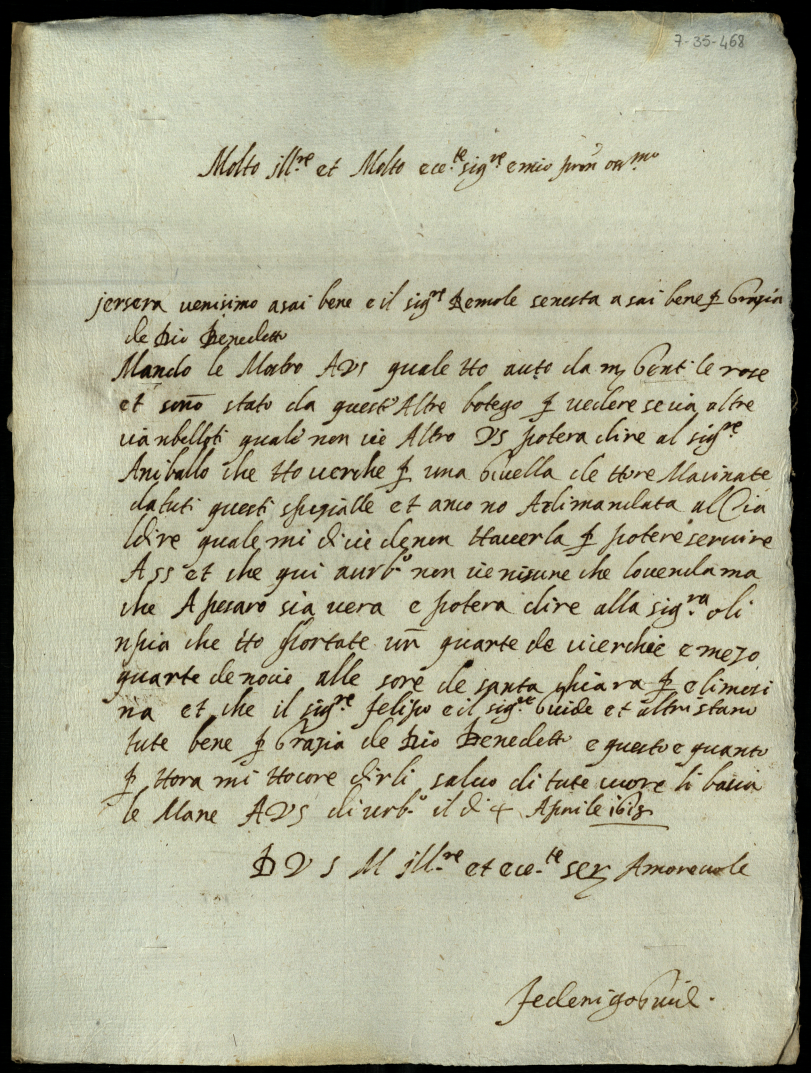 7-35-468
Molto ill.re et Molto ece.te sig.re e mio pron oss.mo
jersera venisimo asai bene e il sig.re Remole senesta asai bene p Grazia
de Dio Benedetto
Mando le A VS quale Ho auto da m Gentile rose
et sono stato da quest Altre botege p vedere se via altre
quale non vie Altro VS potera dire al sig.re
Aniballo che Ho p una de Hore Macinate
da tuti questi spizialle et anco no Adimandata al Cia
ldire quale mi dicie de non Haverla p potere servire
A SS et che qui a urb.o non vie nisune che lo venda ma
che A pesaro sia vera e potera dire alla sig.ra oli
npia che Ho portate un quarte de e mezo
quarte de nocie alle sore de santa chiara p elimosi
na et che il sig.re felipo e il sig.re Guide et altri stano
tute bene p Grazia de Dio Benedetto e questo e quanto
p Hora mi Hocore dirli salvo di tute cuore li bacia
le Mane A VS di urb.o il di 4 Aprile
D V S M ill.re et ece.te ser Amorevole
Federigo